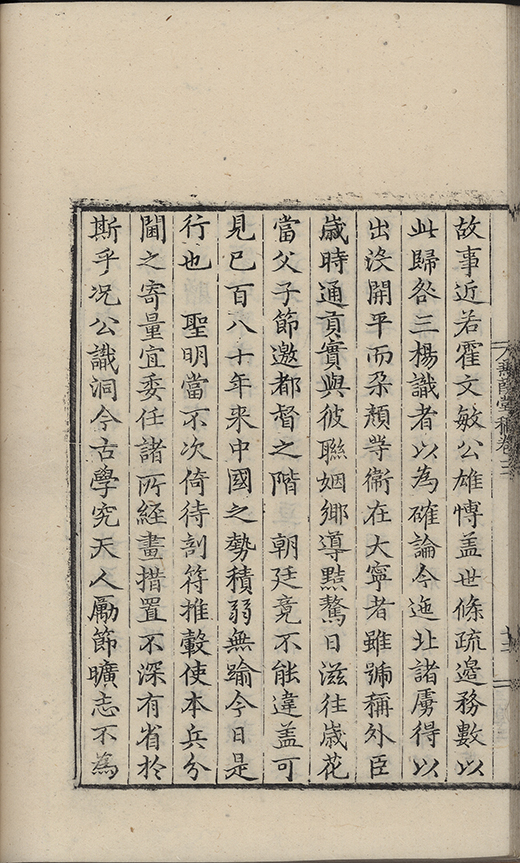 故事近若霍文敏公雄愽盖世條疏邊務數以
此歸咎三楊識者以為確論今迤北諸虜得以
出没開平而朶顔等衞在大寧者雖號稱外臣
歲時通貢實與彼聯姻鄉導黠驁日滋往歲花
當父子節邀都督之階 朝廷竟不能違盖可
見已百八十年来中國之勢積弱無踰今日是
行也 聖明當不次倚待剖符推轂使本兵分
閫之寄量宜委任諸所經畫措置不深有省於
斯乎况公識洞今古學究天人勵節曠志不為
堂稿卷三